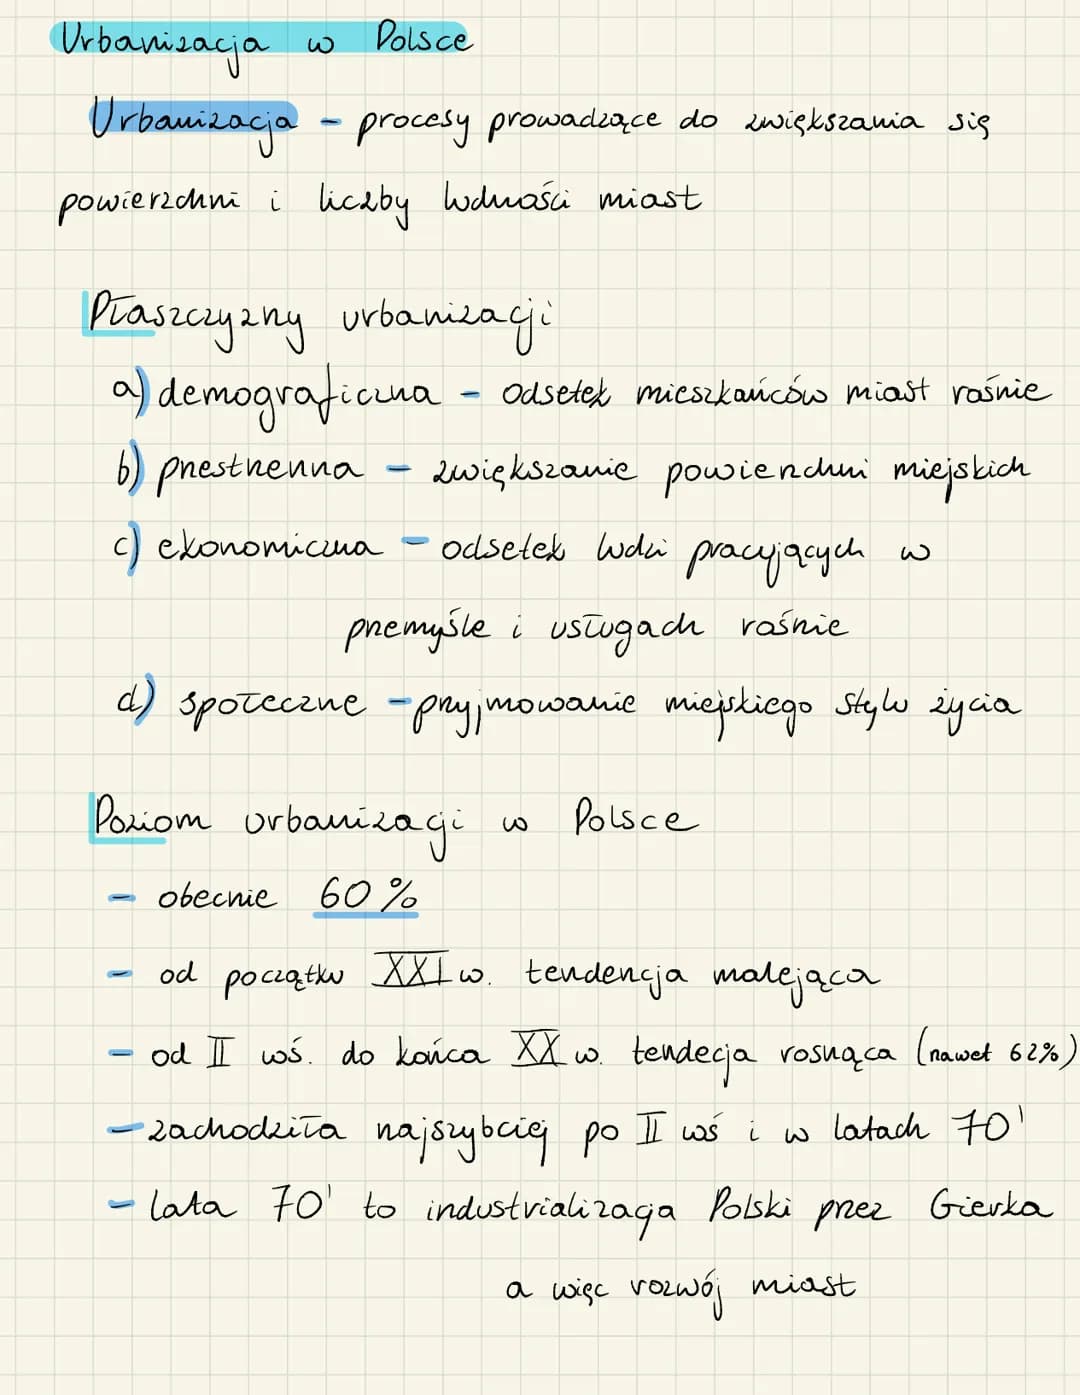 Urbanizacja w Polsce
Urbanizacja - procesy prowadzące do zwiększania się
powierzchni i liczby ludności miast
Płaszczyzny urbanizacji
a) demograficzna - odsetek mieszkańców miast rośnie
b) przestrzenna - zwiększanie powierzchni miejskich
c) ekonomiczna - odsetek ludzi pracujących w
przemyśle i usługach rośnie
d) społeczne - przyjmowanie miejskiego stylu życia
Poziom urbanizacji w Polsce
- obecnie 60%
- od początku XXI w. tendencja malejąca
- od II wś. do końca XX w. tendecja rosnąca (nawet 62%)
- zachodziła najszybciej po II wś i w latach 70'
- lata 70' to industrializacja Polski przez Gierka
a więc rozwój miast